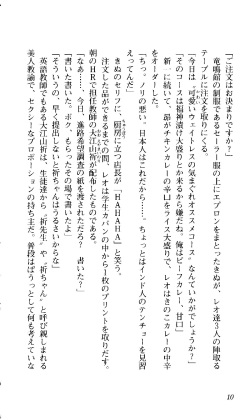 「ご注文はお決まりですか？」
竜鳴館の制服であるセーラー服の上にエプロンをまとったきぬが、レオ達3人の陣取る
テーブルに注文を取りにくる。
「今日は〝可愛いウェイトレスの気まぐれオススメコース〟なんていかがでしょうか？」
「そのコースは福神漬け大盛りとか来るから嫌だね。俺はビーフカレー、甘口」
新一に続いて、昴がチキンカレーの辛口をライス大盛りで、レオはきのこカレーの中辛
をオーダーした。
「ちっ。ノリの悪い。日本人はこれだから……。ちょっとはインド人のテンチョーを見習
えってんだ」
きぬのセリフに、厨房に立つ店長が「HAHAHA」と笑う。
注文した品ができるまでの間、レオは学生カバンの中から1枚のプリントを取りだす。
朝のHRで担任教師の大江山祈が配布したものである。
「なあ……、今日、進路希望調査の紙を渡されただろ？　書いた？」
「書いた書いた。ボク、もらったその場で書いたよ」
「そういうの、早く提出しないと祈ちゃんうるさいからな」
英語教師でもある大江山祈は、生徒達から〝祈先生〟や〝祈ちゃん〟と呼び親しまれる
美人教諭で、セクシーなプロポーションの持ち主だ。普段はぼうっとして何も考えていな
10